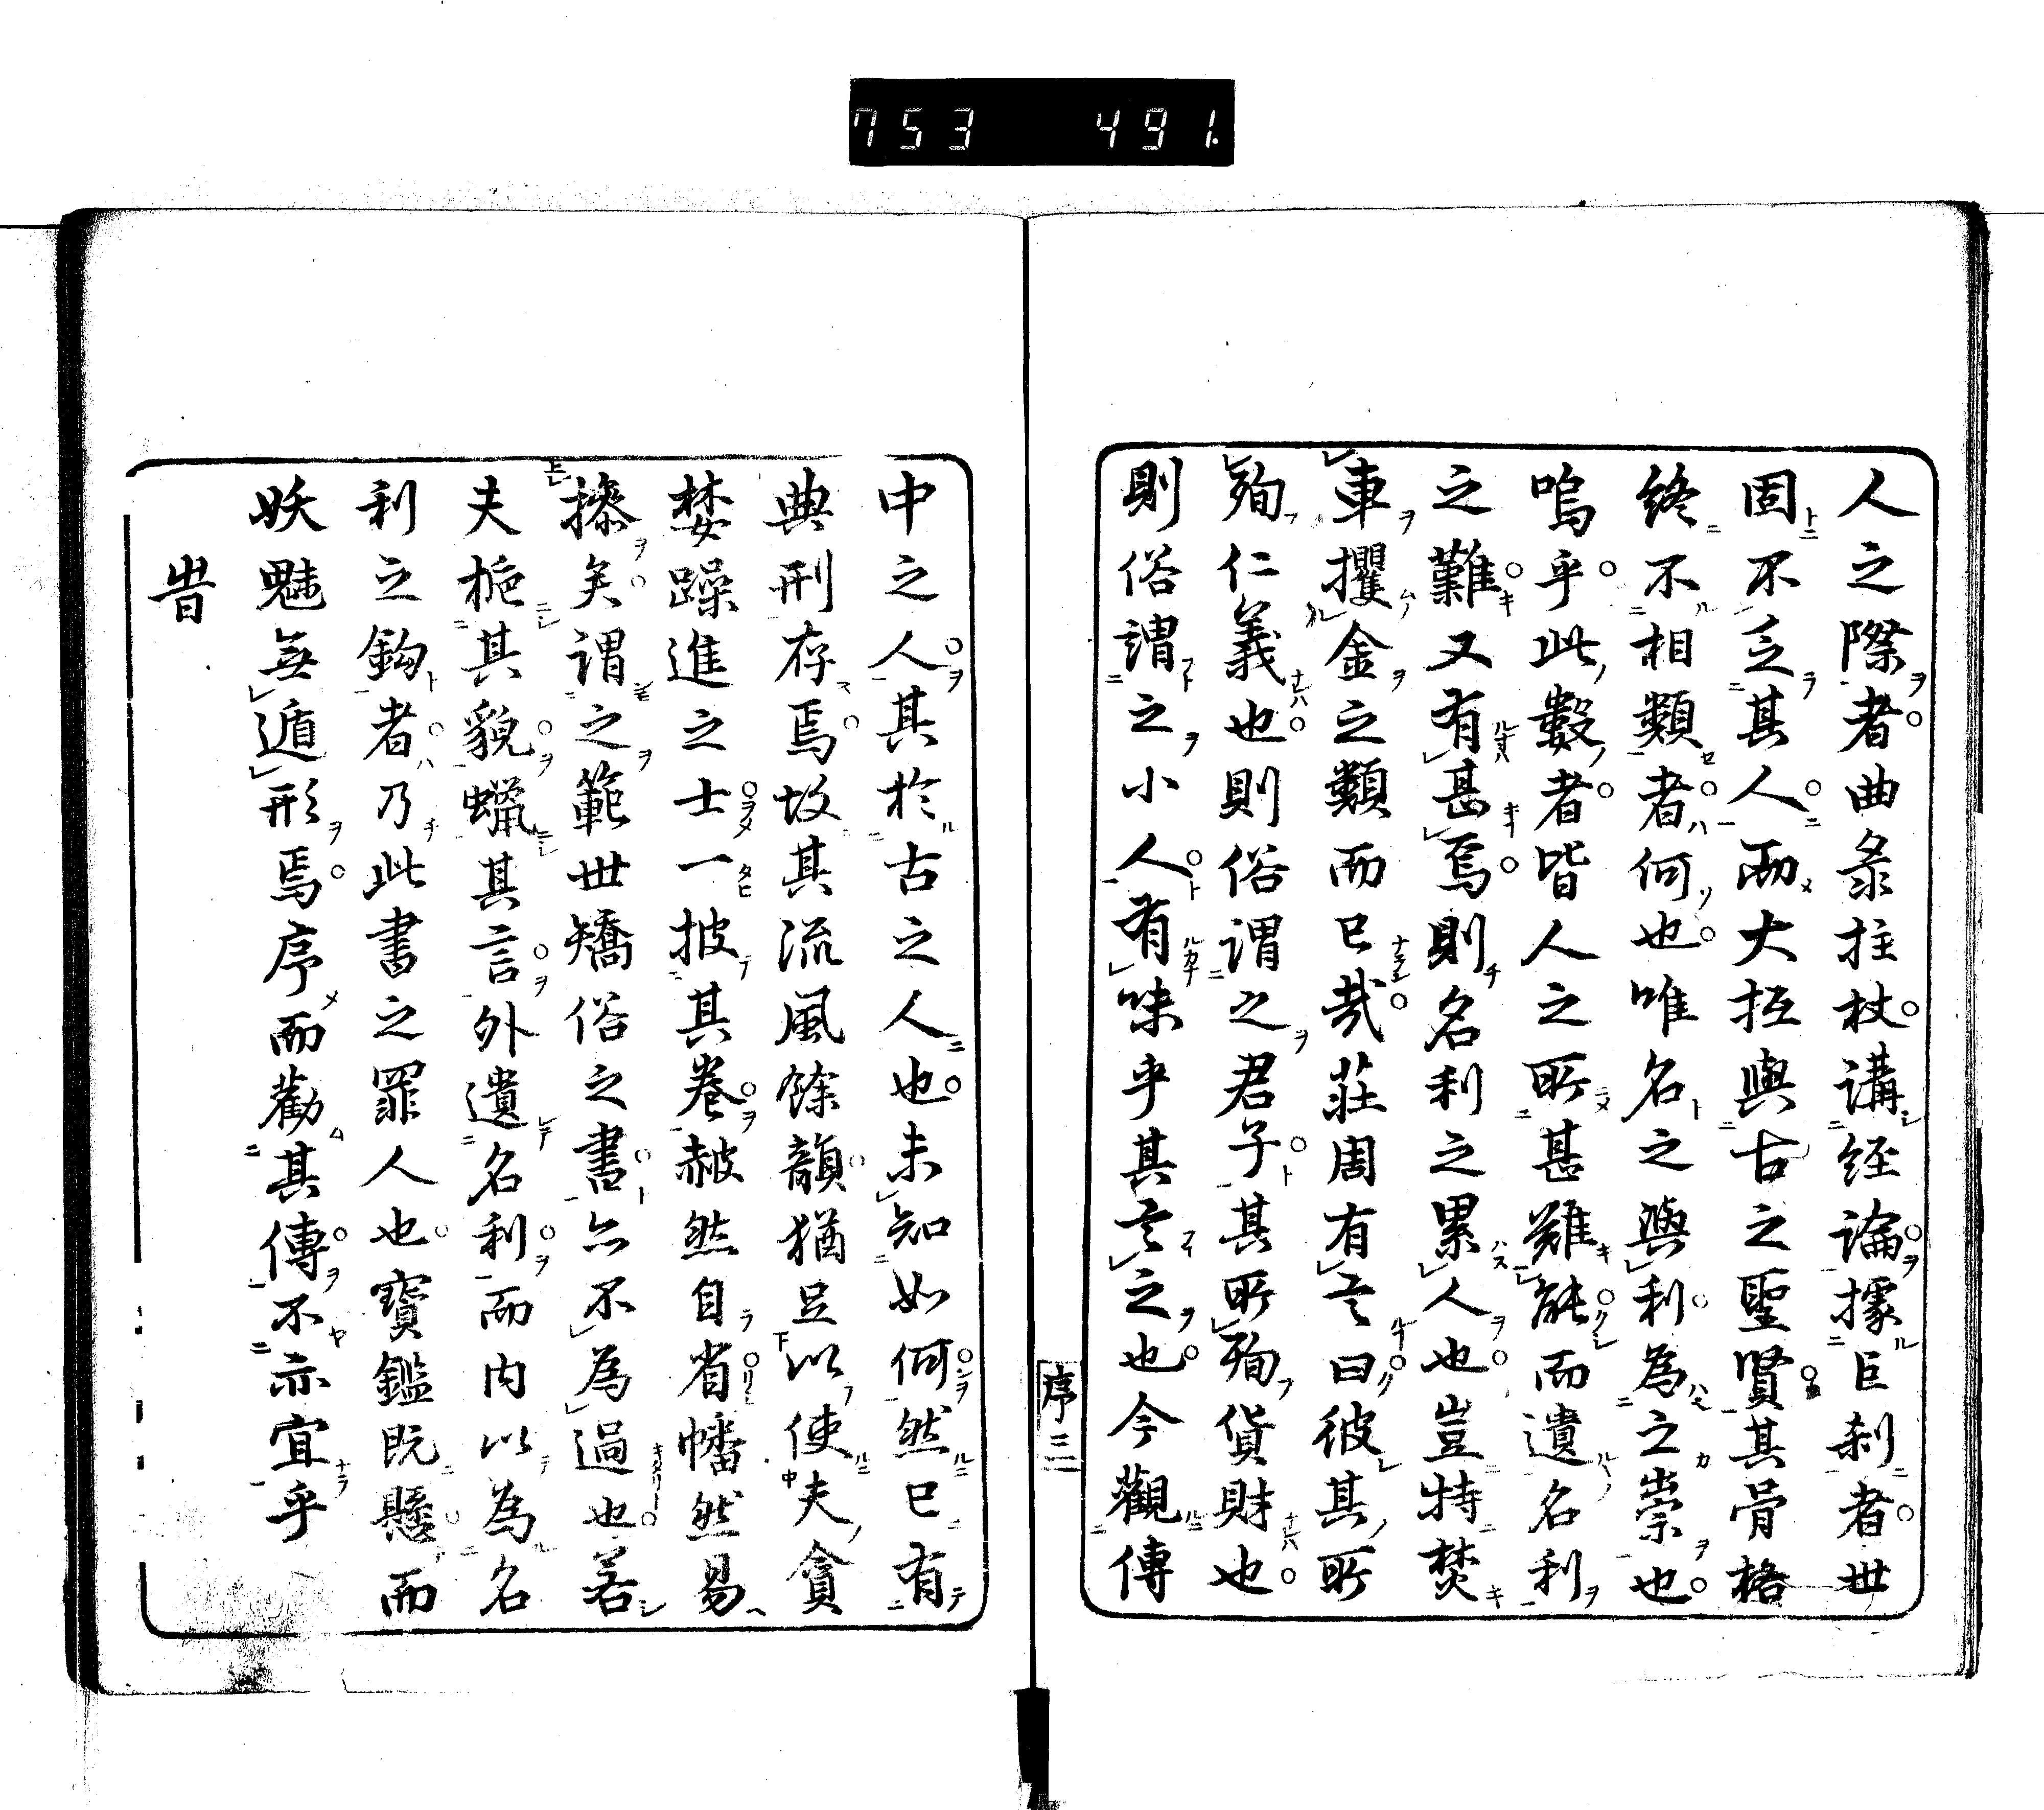 753 491.
人之際者曲彔拄杖講経論據巨刹者世
固不乏其人而大抵與古之聖賢其骨格
終不相類者何也唯名之與利為之崇也
嗚乎此數者皆人之所甚難能而遺名利
之難又有甚焉則名利之累人也豈特焚
車攫金之類而已哉莊周有言曰彼其所
殉仁義也則俗謂之君子其所殉貨財也
則俗謂之小人有味乎其言之也今觀傳
序三
中之人其於古之人也未知如何然已有
典刑存焉故其流風餘韻猶足以使夫貪
婪躁進之士一披其卷赧然自省幡然易
操矣謂之範世矯俗之書亦不為過也若
夫梔其貌蠟其言外遺名利而内以為名
利之鈎者乃此書之罪人也寳鑑既懸而
妖魅無遁形焉序而勸其傳不亦宜乎
旹